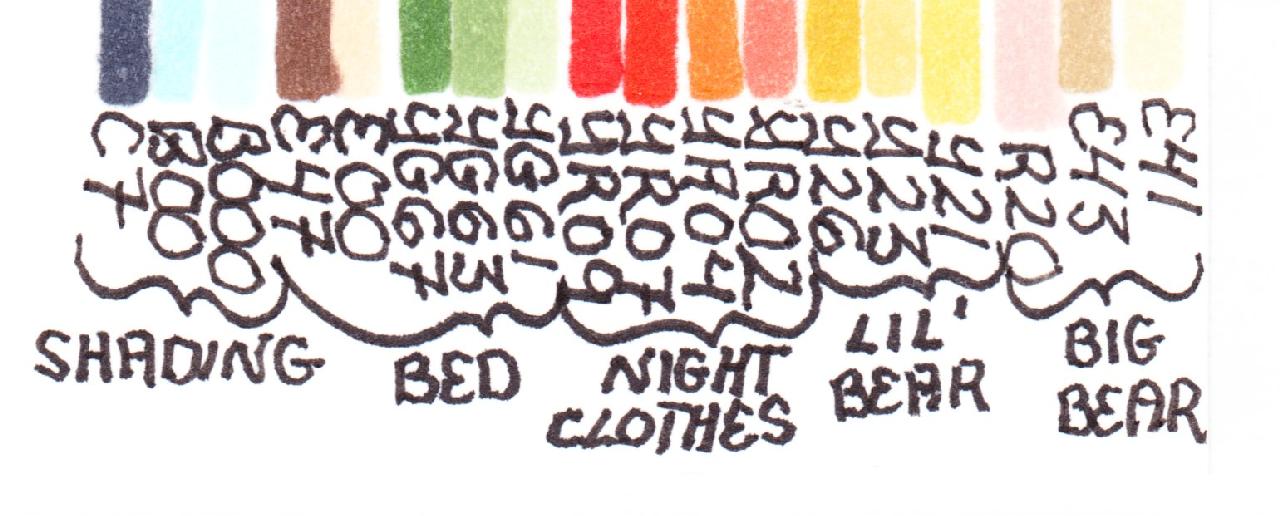 C7
B00
B000
E47
E00
YG67
YG63
YG61
YR09
YR07
Y26
Y23
Y21
R20
E43
E41
SHADING
BED
NIGHT
CLOTHES
LIL'
BEAR
BIG
BEAR